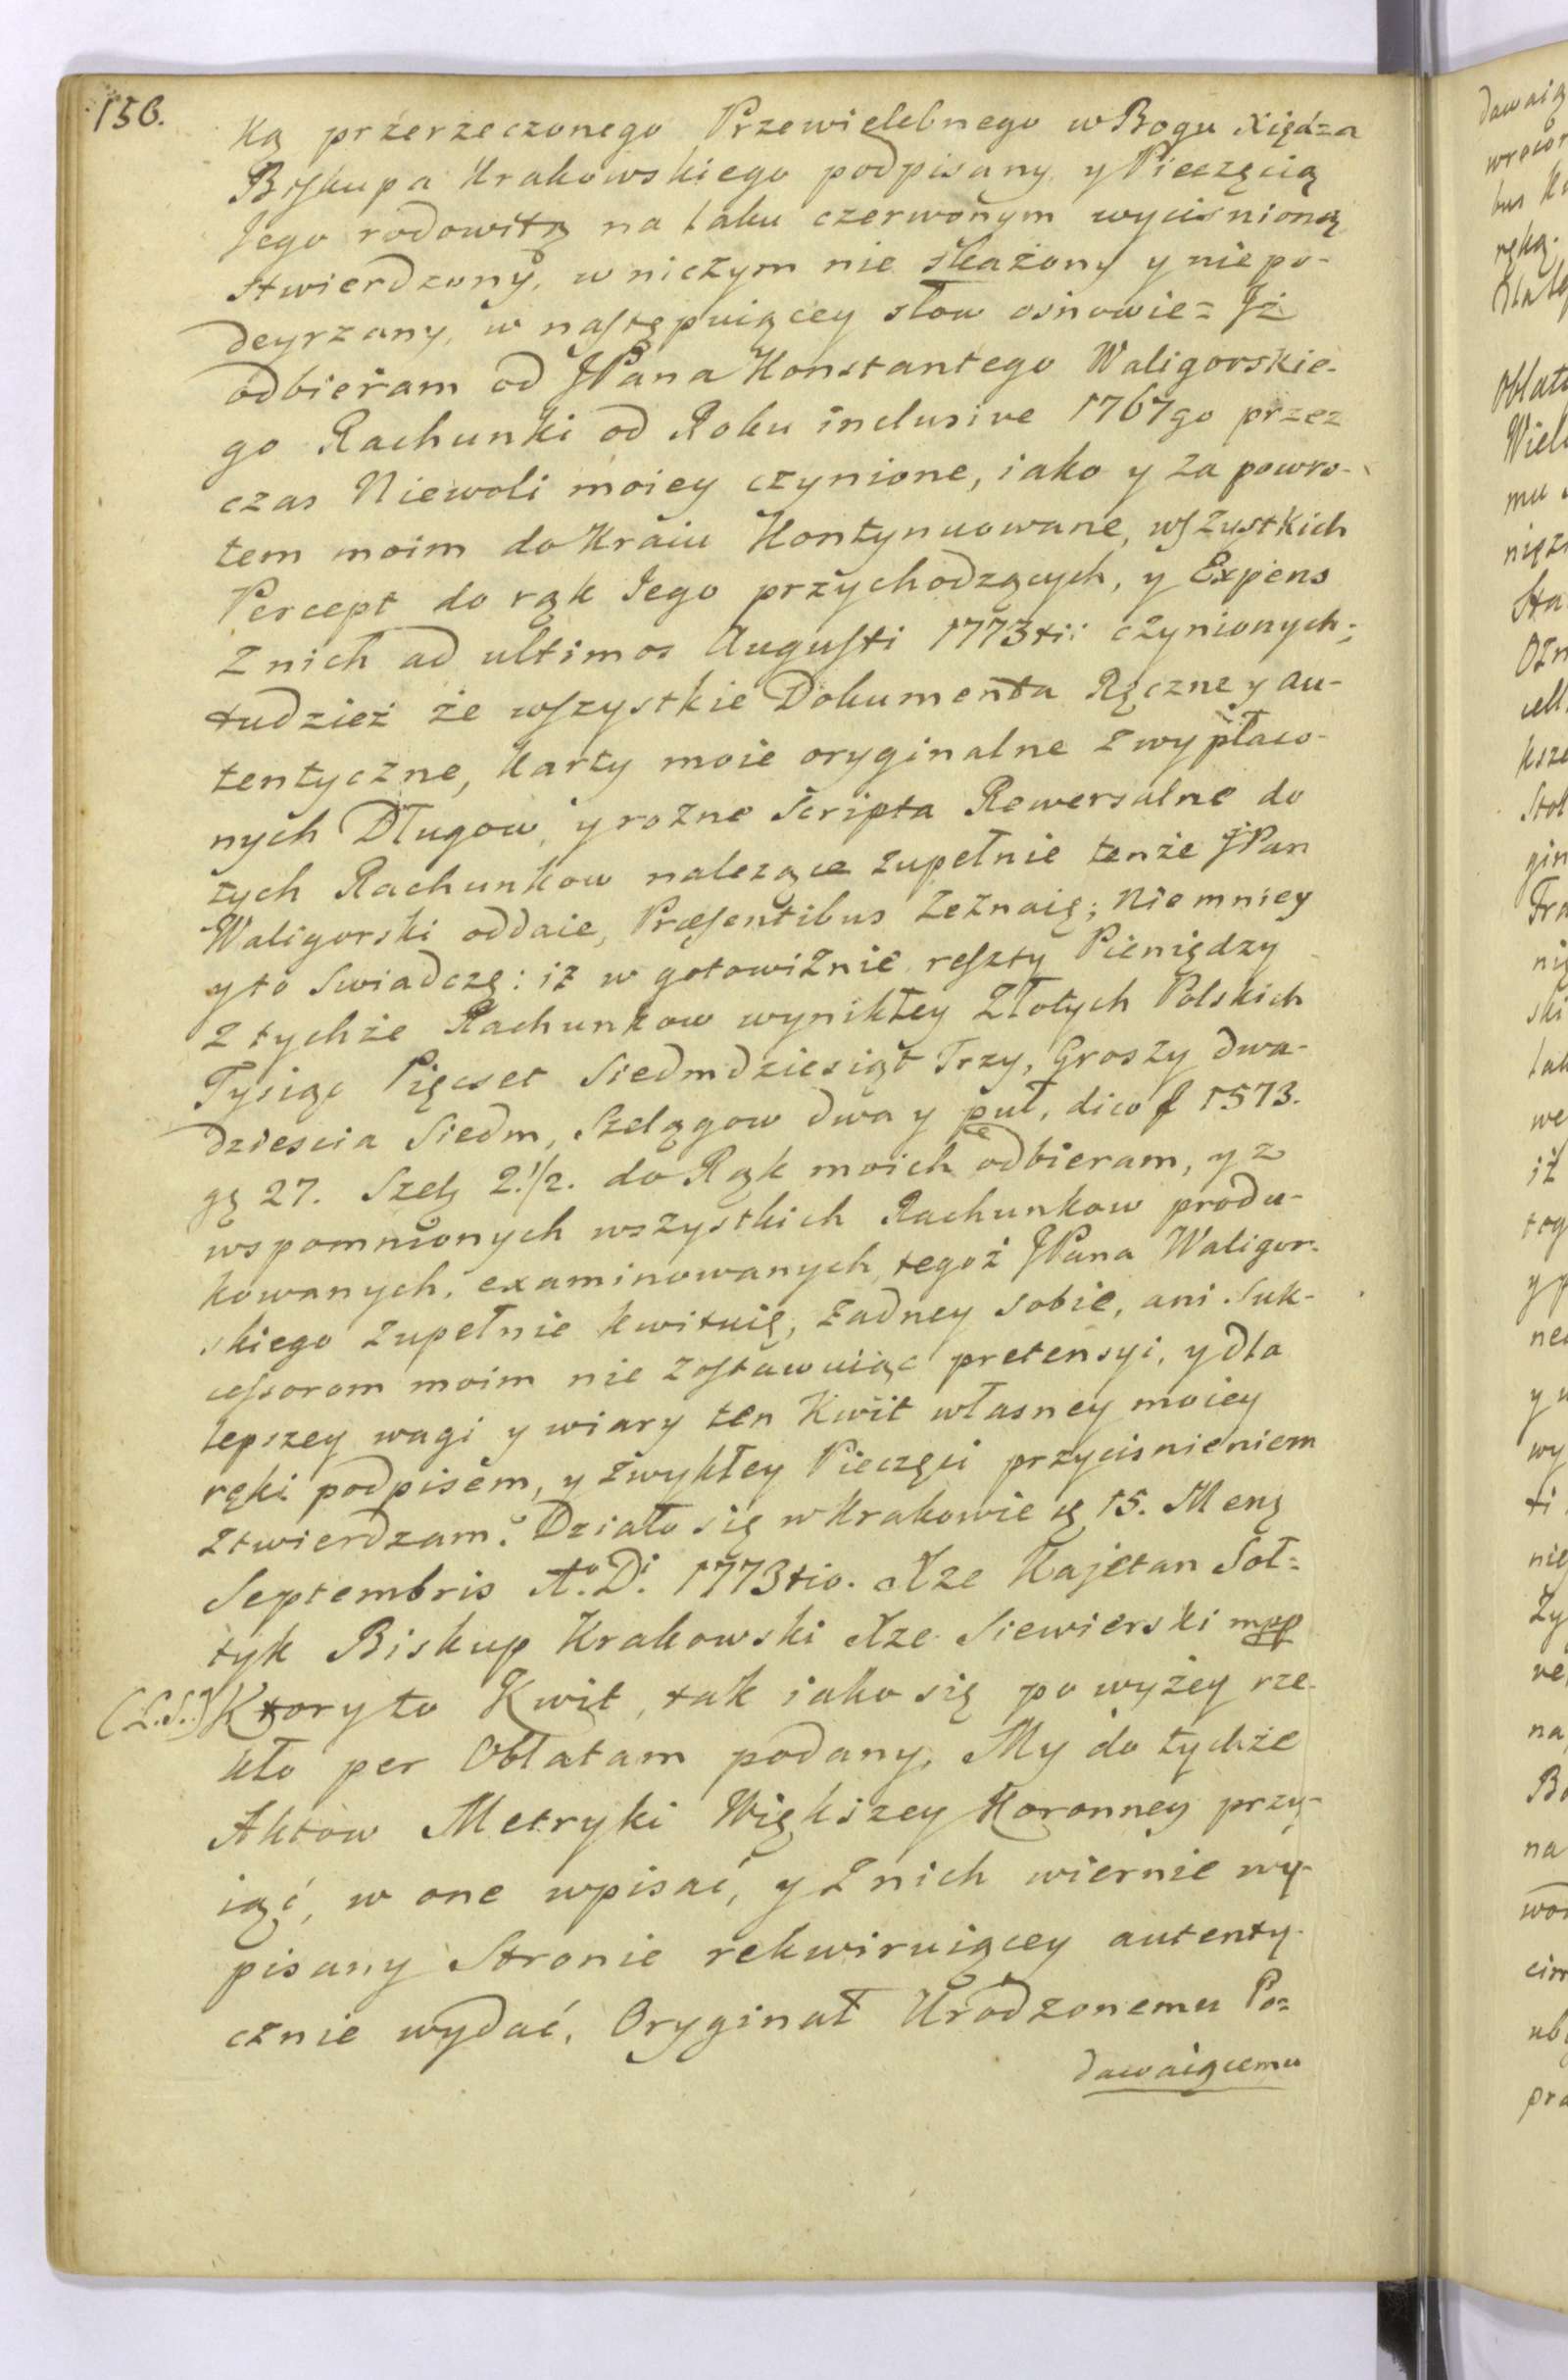 156.
ką przerzeczonego Przewielebnego w Bogu Xiędza
Biskupa Krakowskiego podpisany y Pieczęcią
Jego rodowitą na laku czerwonym wyciśnioną
stwierdzony, w niczym nie skażony y niepo-
deyrzany, w następuiącey słow osnowie = Jż
odbieram od JPana Konstantego Waligorskie-
go Rachunki od Roku inclusive 1767go przez
czas Niewoli moiey czynione, iako y za powro-
tem moim do Kraiu Kontynuowane, wszystkich
Percept do rąk Jego przychodzących, y Expens
z nich ad ultimos Augusti 1773tii czynionych;
tudzież że wszystkie Dokumenta Ręczne y au-
tentyczne, Karty moie oryginalne z wypłaco-
nych Długow, y rożne Scripta Rewersalne do
tych Rachunkow należące zupełnie tenże JPan
Waligorski oddaie, Præsentibus zeznaię; Niemniey
y to swiadczę: iż w gotowiźnie reszty Pieniędzy
z tychże Rachunkow wynikłey Złotych Polskich
Tysiąc Pięcset Siedmdziesiąt Trzy, Groszy dwa-
dziescia Siedm, Szelągow dwa y puł, dico f 1573.
gę 27. Szelę 2.1/2. do Rąk moich odbieram, y ze
wspomnionych wszystkich Rachunkow produ-
kowanych, examinowanych, tegoż JPana Waligor-
skiego zupełnie kwituię, żadney sobie, ani Suk-
cessorom moim nie zostawuiąc pretensyi, y dla
lepszey wagi y wiary ten Kwit własney moiey
ręki podpisem, y zwykłey Pieczęci przycisnieniem
ztwierdzam. Działo się w Krakowie dę 15. Mensę
Septembris Ao. Di. 1773tio. Xze Kajetan Soł=
tyk Biskup Krakowski Xze Siewierski mpp
(L.S.) Ktory to Kwit, tak iako się powyżey rze-
kło per Oblatam podany, My do tychże
Aktow Metryki Większey Koronney przy-
iąć, w one wpisać, y z nich wiernie wy-
pisany Stronie rekwiruiącey autenty-
cznie wydać, Oryginał Urodzonemu Po=
dawaiącemu